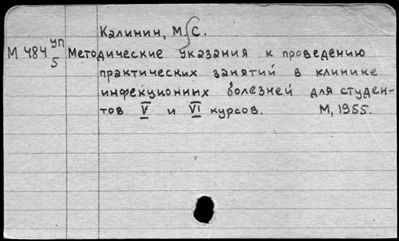 Калинин, М. С.
М 484 уп/5 Методические указания к проведению
практических занятий в клинике
инфекционных болезней для студен-
тов V и VI курсов. М, 1955.